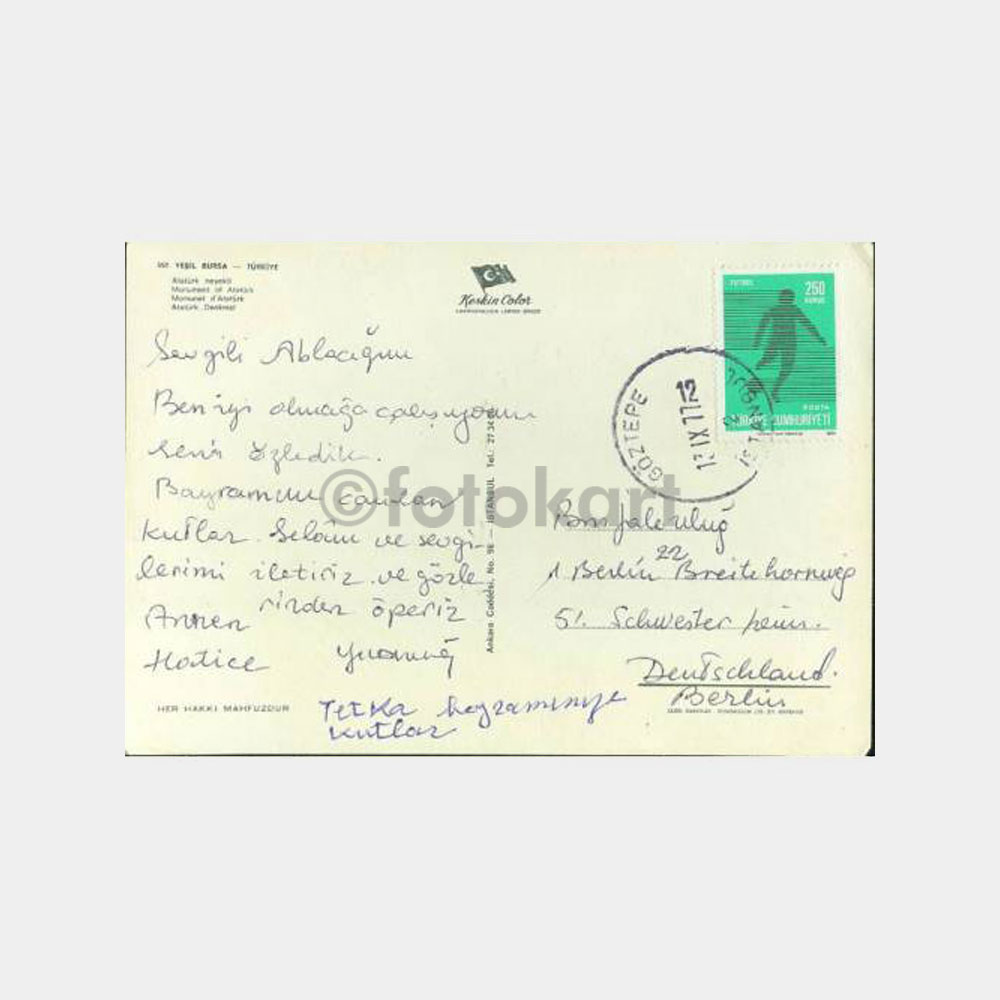 YEŞİL BURSA — TÜRKİYE
Atatürk heykeli
Monument of Atatürk
Monunet d'Atatürk
Atatürk Denkmal
Keskin Color
FUTBOL
250
KURUŞ
POSTA
TÜRKİYE CUMHURİYETİ
GÖZTEPE
IX.77.12
İSTANBUL
Sevgili Ablacığım
Ben iyi olmağa çalışıyorum
seni özledik.
Bayramını candan
kutlar. Selâm ve sevgi-
lerimi iletiriz. ve gözle
rinden öperiz
Annen
Hatice
HER HAKKI MAHFUZDUR
Tetka bayramınıze
kutlar
Ankara Caddesi, No. 98 — İSTANBUL Tel.: 27
©fotokart
22
1 Berlin Breitehornweg
51. Schwester heim.
Deutschland.
Berlin